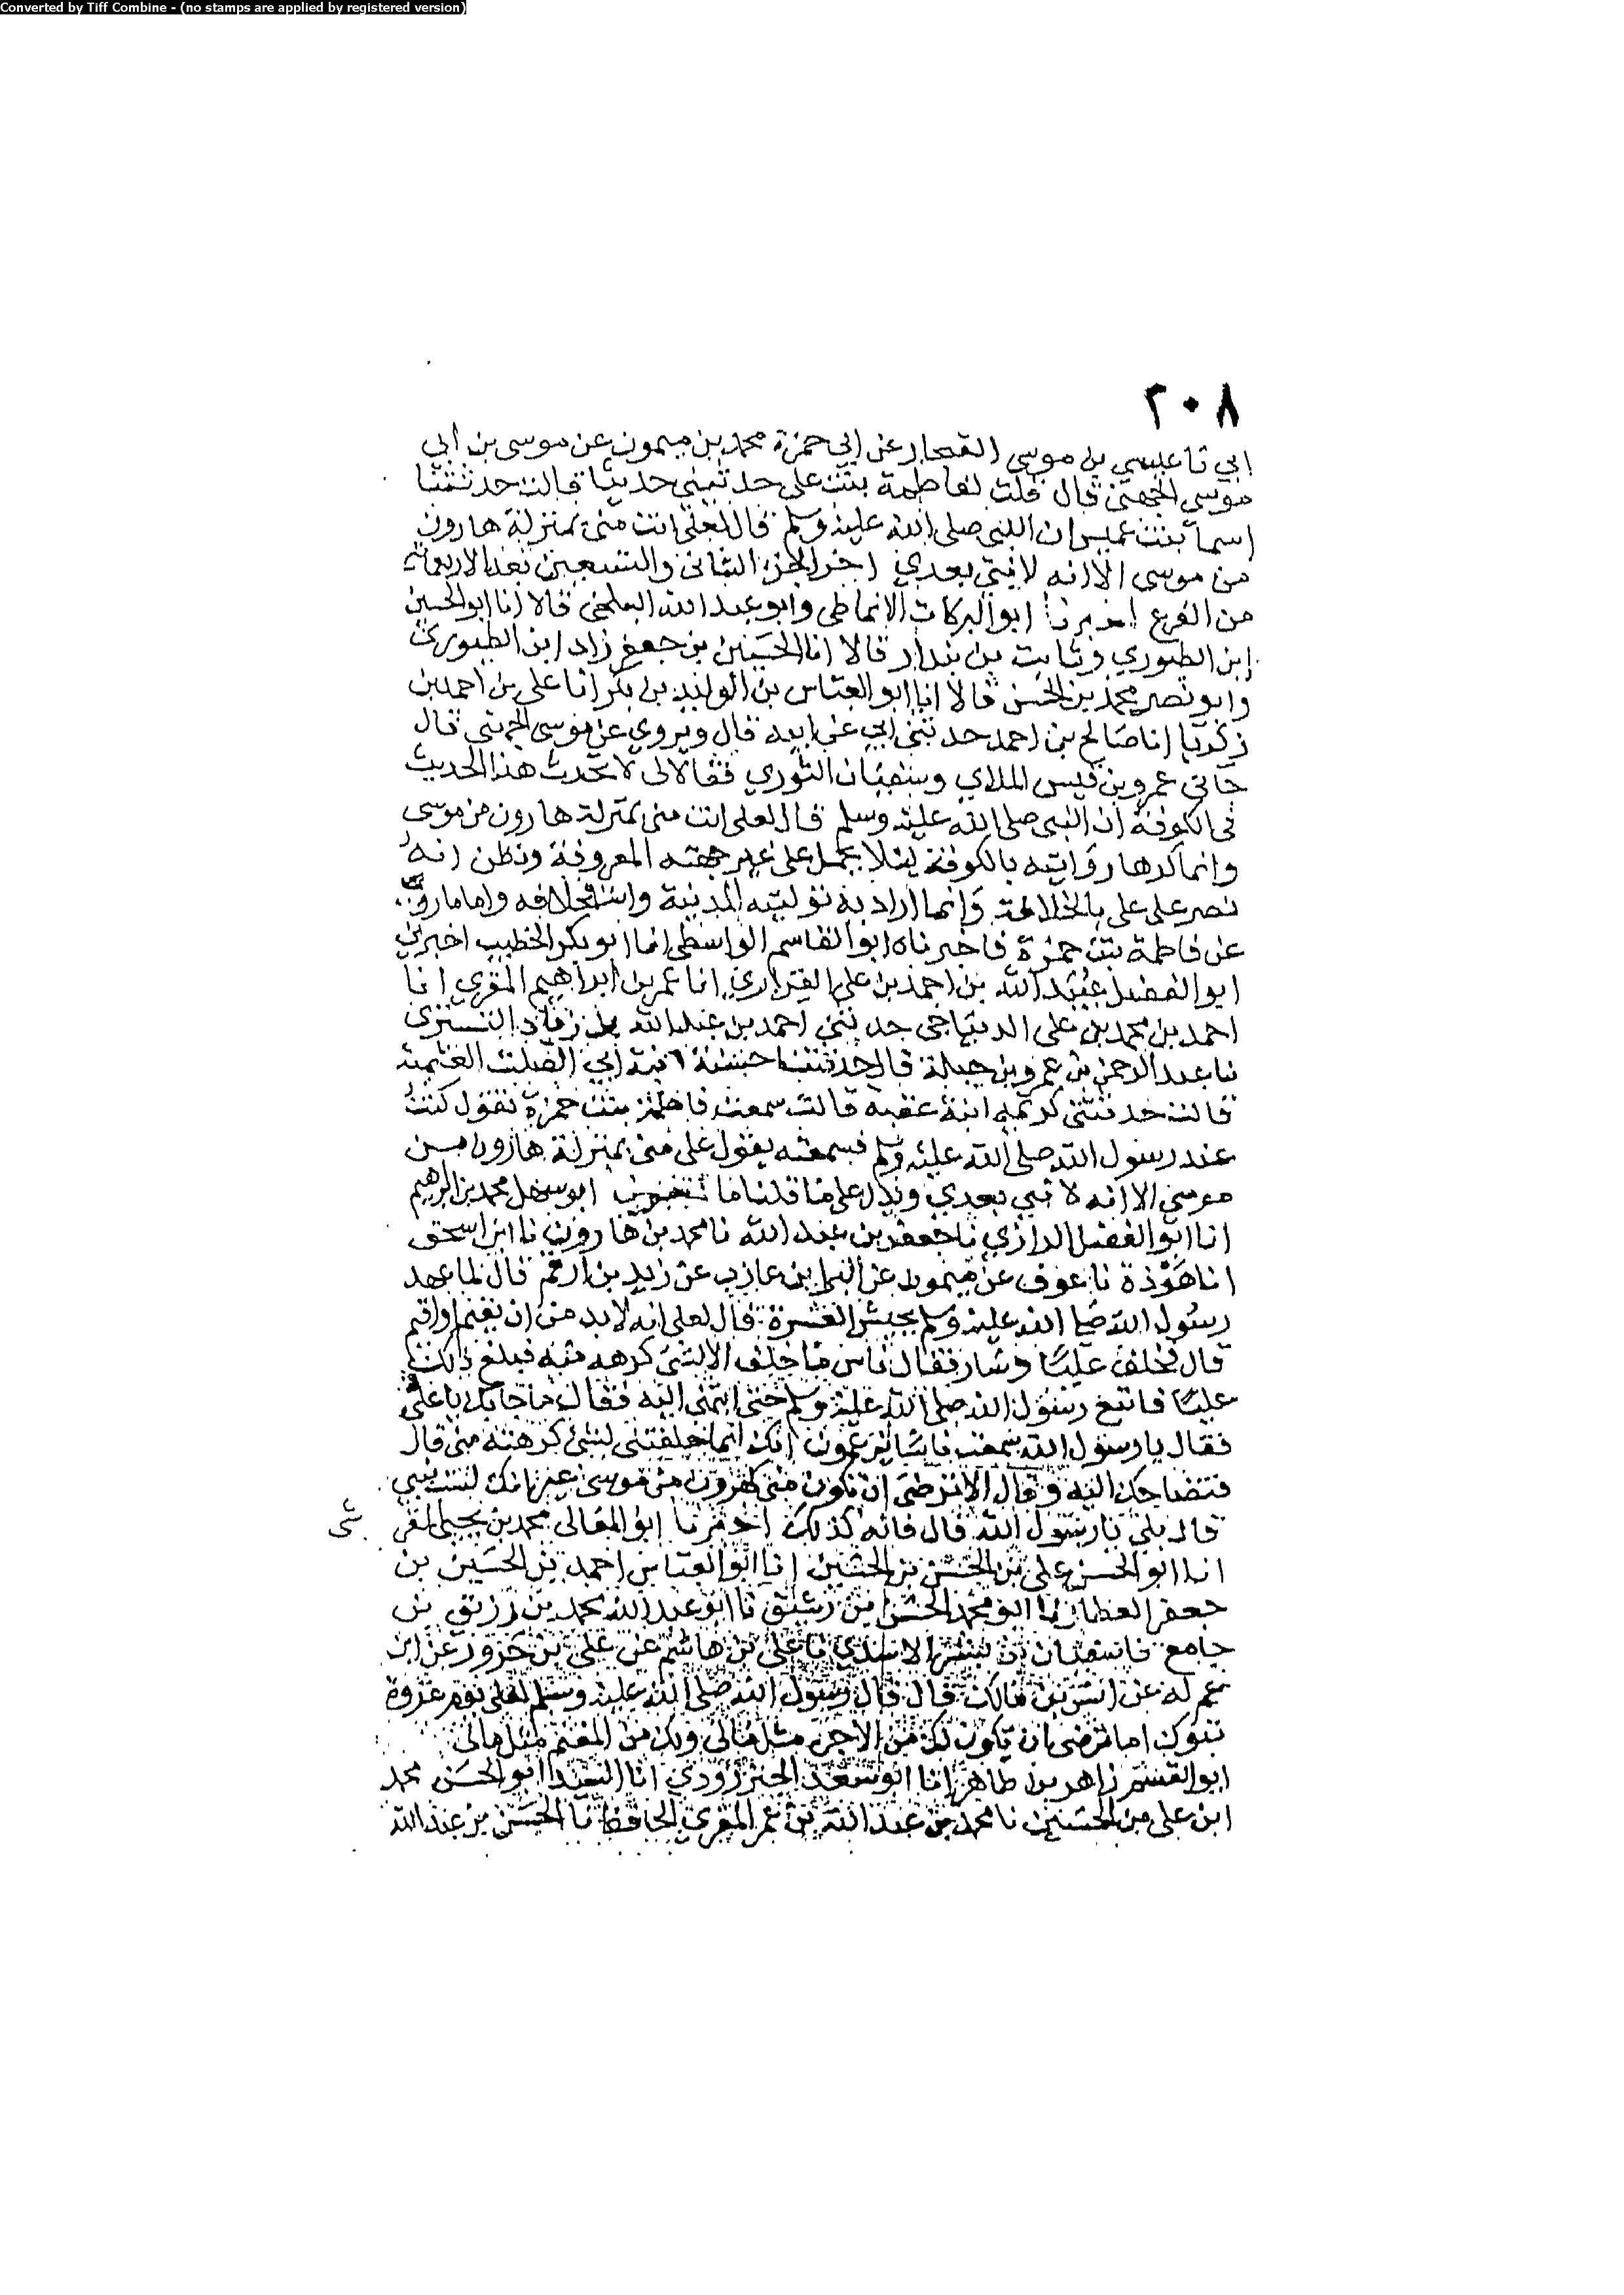 Converted by Tiff Combine - (no stamps are applied by registered version)
٢٠٨
ابي نا عيسي بن موسى عن ابي حمزة محمد بن ميمون عن موسى بن ابي
موسى الجهني قال قلت لفاطمة بنت علي حدثيني حديثا قالت حدثتنا
اسما بنت عميس ان النبي صلى الله عليه وسلم قال لعلي انت مني بمنزلة هارون
من موسى الا انه لا نبي بعدي اخر الجزء الثاني والتسعين بعد الاربعمائة
من الفرع اخبرنا ابو البركات الانماطي وابو عبد الله البلخي قالا انا ابو الحسين
ابن الطيوري وثابت بن بندار قالا انا الحسين بن جعفر زاد ابن الطيوري
وابو نصر محمد بن الحسن قالا انا ابو العباس بن الوليد بن بكر انا علي بن احمد بن
زكريا انا صالح بن احمد حدثني ابي عن ابيه قال ويروي عن موسى الجهني قال
جاني عمرو بن قيس الملاي وسفيان الثوري فقالا لي لا تحدث هذا الحديث
في الكوفة ان النبي صلى الله عليه وسلم قال لعلي انت مني بمنزلة هارون من موسى
وانما كرها روايته بالكوفة ليلا يحمل على غير جهته المعروفة ونظن انه
نص على علي بالخلافة وانما اراد به توليته المدينة واستخلافه واما ما روي
عن فاطمة بنت حمزة فاخبرناه ابو القاسم الواسطي انا ابو بكر الخطيب اخبرني
ابو الفضل عبيد الله بن احمد بن علي انا عمر بن ابراهيم المقري انا
احمد بن محمد بن علي الديباجي حدثني احمد بن عبد الله بن زياد التستري
نا عبد الرحمن بن عمرو بن جبلة قال حدثتنا ابنة ابي الصلت
قالت حدثتني كريمة ابنة عقبة قالت سمعت فاطمة بنت حمزة تقول كنت
عند رسول الله صلى الله عليه وسلم فسمعته يقول علي مني بمنزلة هارون من
موسى الا انه لا نبي بعدي ويدل على ما قلنا ما ابو سهل محمد بن ابرهيم
انا ابو الفضل الرازي نا جعفر بن عبد الله نا محمد بن هارون نا ابن اسحق
انا هوذة نا عوف عن ميمون عن البرا بن عازب عن زيد بن ارقم قال لما عهد
رسول الله صلى الله عليه وسلم بجيش العسرة قال لعلي انه لا بد من ان تقيم او اقيم
قال فخلف عليا وسار فقال ناس ما خلف الا لشي كرهه منه فبلغ ذلك
عليا فاتبع رسول الله صلى الله عليه وسلم حتى انتهى اليه فقال ما جا بك يا علي
فقال يا رسول الله سمعت ناسا يزعمون انك انما خلفتني لشي كرهته مني قال
فتضاحك اليه وقال الا ترضى ان تكون مني كهرون من موسى غير انك لست بنبي
قال بلى يا رسول الله قال فانه كذلك اخبرنا ابو المعالي محمد بن يحيى
انا ابو الحسن علي بن الحسن بن الحسين انا ابو العباس احمد بن الحسين بن
جعفر العطار نا ابو محمد الحسن بن رشيق نا ابو عبد الله محمد بن رزيق بن
جامع نا سفيان بن بشر الاسدي نا علي بن هاشم عن علي بن حزور عن ابن
عم له عن انس بن مالك قال قال رسول الله صلى الله عليه وسلم لعلي يوم غزوة
تبوك اما ترضى ان يكون لك من الاجر مثل مالي ولك من المغنم مثل مالي
ابو القسم زاهر بن طاهر انا ابو سعد الجنزرودي انا السيد ابو الحسن محمد
ابن علي بن الحسين نا محمد بن عبد الله بن عمر المقري الحافظ نا الحسن بن عبد الله